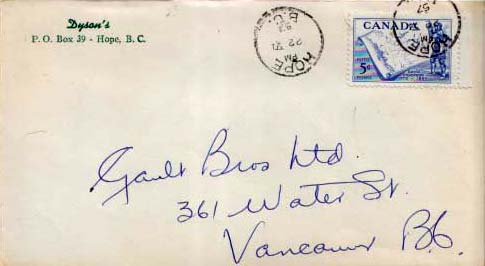 Dyson's
P. O. Box 39 - Hope, B. C.
HOPE
PM
22 XI
B.C.
HOPE
PM
57
CANADA
5¢
Gault Bros Ltd.
361 Water St.
Vancouver B.C.